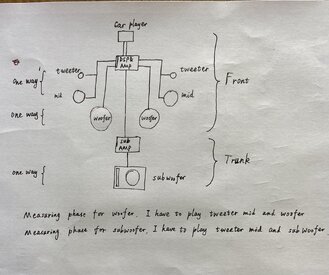 Car player
DSP&
Amp
tweeter
tweeter
one way
mid
mid
Front
woofer
woofer
one way
sub
Amp
Trunk
one way
subwoofer
Measuring phase for woofer. I have to play tweeter mid and woofer
Measuring phase for subwoofer. I have to play tweeter mid and subwoofer